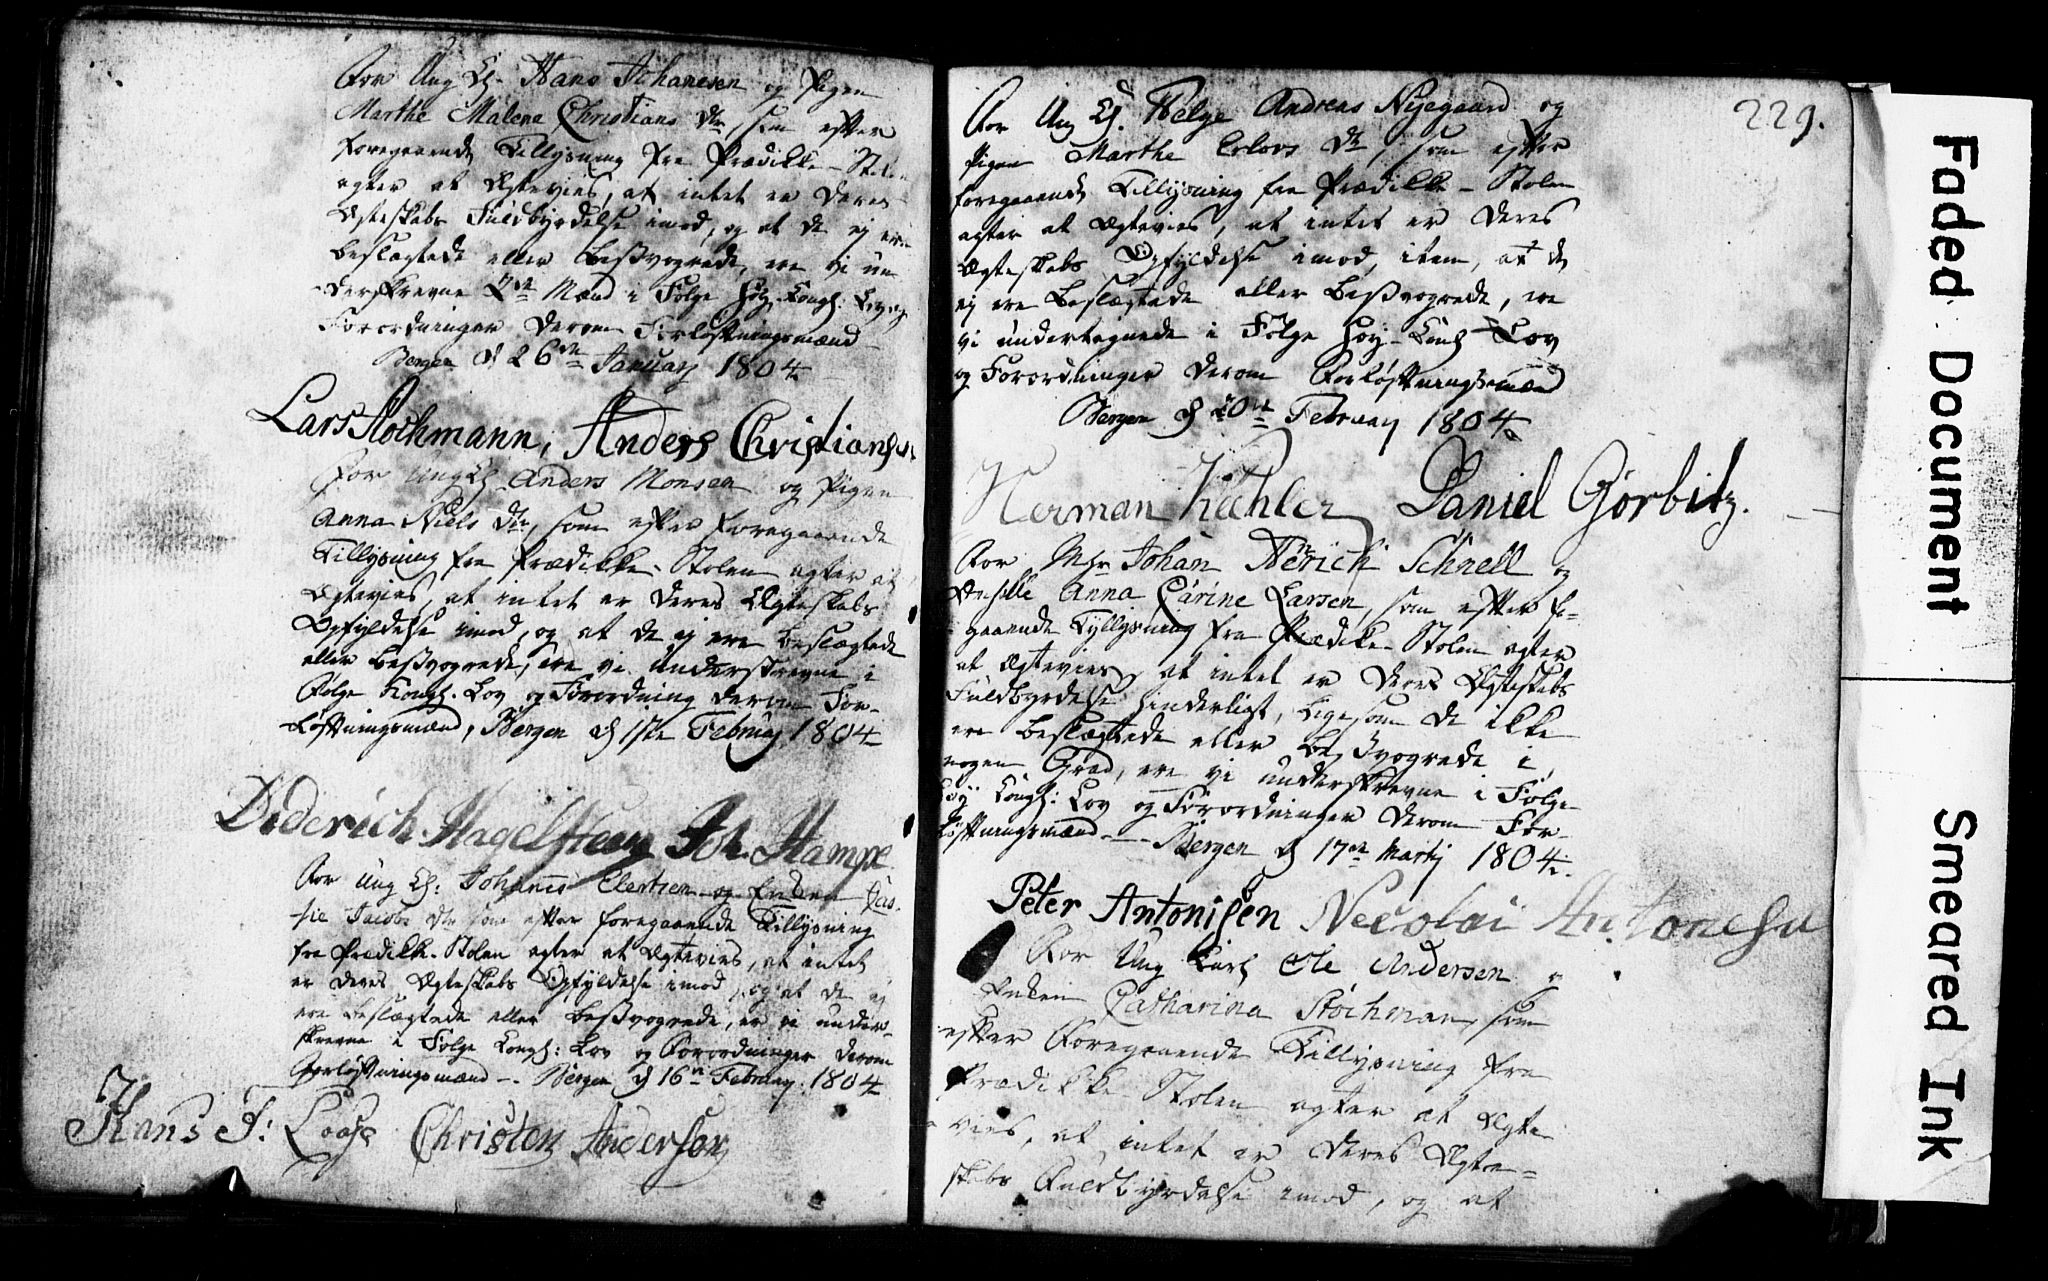 For Ung K. Hans Johanesen og Pigen
Marthe Malena Christians dtr, som efter
foregaaende Tillysning fra Prædikke-Stolen
agter at Ægtevies, at intet er deres
Ægteskabs Fuldbyrdelse imod, og at de ej ere
beslægtede eller besvogrede, ere vi un
derskrevne Mænd i Følge Høy-Kongl:
Forordninger derom Forløftningsmænd
Bergen d 26de January 1804
Lars Stochmann, Anders Christiansen
For Ung K Anders Monsen og Pigen
Anna Niels dtr, som efter foregaaende
Tillysning fra Prædikke-Stolen agter at
Ægtevies, at intet er deres Ægteskabs
Opfyldelse imod, og at de ej ere beslægtede
eller besvogrede, ere vi underskrevne i
Følge Kongl. Lov og Forordning derom For-
løftningsmænd, Bergen d 1ste February 1804
Diderich Hagelsteen Joh. Hampe
For Ung K: Johannes Elertsen og Enken
Jacobs dtr som efter foregaaende Tillysning
fra Prædikke-Stolen agter at Ægtevies, at intet
er deres Ægteskabs Opfyldelse imod, og at de ej
ere beslægtede eller besvogrede, er vi under-
skrevne i Følge Kongl: Lov og Forordninger derom
Forløftningsmænd -- Bergen d 16de February 1804
Hans J: Loose Christen Andersen
229.
For Ung K. Helge Andreas Nyegaard og
Pigen Marthe Erlovs dtr, som efter
foregaaende Tillysning fra Prædikke-Stolen
agter at Ægtevies, at intet er deres
Ægteskabs Opfyldelse imod, item, at de
ej ere beslægtede eller besvogrede, ere
vi undertegnede i Følge Høy-Kongl Lov
og Forordninger derom Forløftningsmænd
Bergen d February 1804
Herman Kechler Daniel Gørbitz.
For Mgr Johan Henrich Schnell og
Anna Carine Larsen, som efter fo-
gaaende Tyllysning fra Prædike-Stolen agter
at Ægtevies, at intet er deres Ægteskabs
Fuldbyrdelse hinderligt, ligesom de ikke
ere beslægtede eller besvogrede i
nogen Grad, ere vi underskrevne i Følge
Høy Kongl: Lov og Forordninger derom For-
løftningsmænd -- Bergen d 17de Martj 1804.
Peter Antonisen Necolai Antonesen
For Ung Karl Ole Andersen og
Enken Catharina Stochman, som
efter Foregaaende Tillysning fra
Prædikke Stolen agter at Ægte
vies, at intet er deres Ægte-
skabs Fuldbyrdelse imod, og at
Faded Document
Smeared Ink